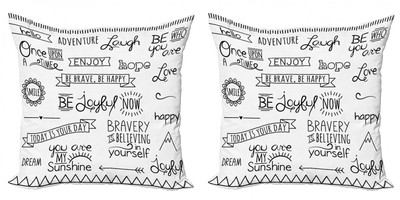 hello ADVENTURE Laugh BE WHO
you ARE
Once UPON
A TIME
ENJOY
hope
Love
BE BRAVE, BE HAPPY
SMILE
BE Joyful NOW
happy
TODAY IS YOUR DAY
BRAVERY
is BELIEVING
in
yourself
DREAM
you are
MY
Sunshine
Joyful
hello ADVENTURE Laugh BE WHO
you ARE
Once UPON
A TIME
ENJOY
hope
Love
BE BRAVE, BE HAPPY
SMILE
BE Joyful NOW
happy
TODAY IS YOUR DAY
BRAVERY
is BELIEVING
in
yourself
DREAM
you are
MY
Sunshine
Joyful